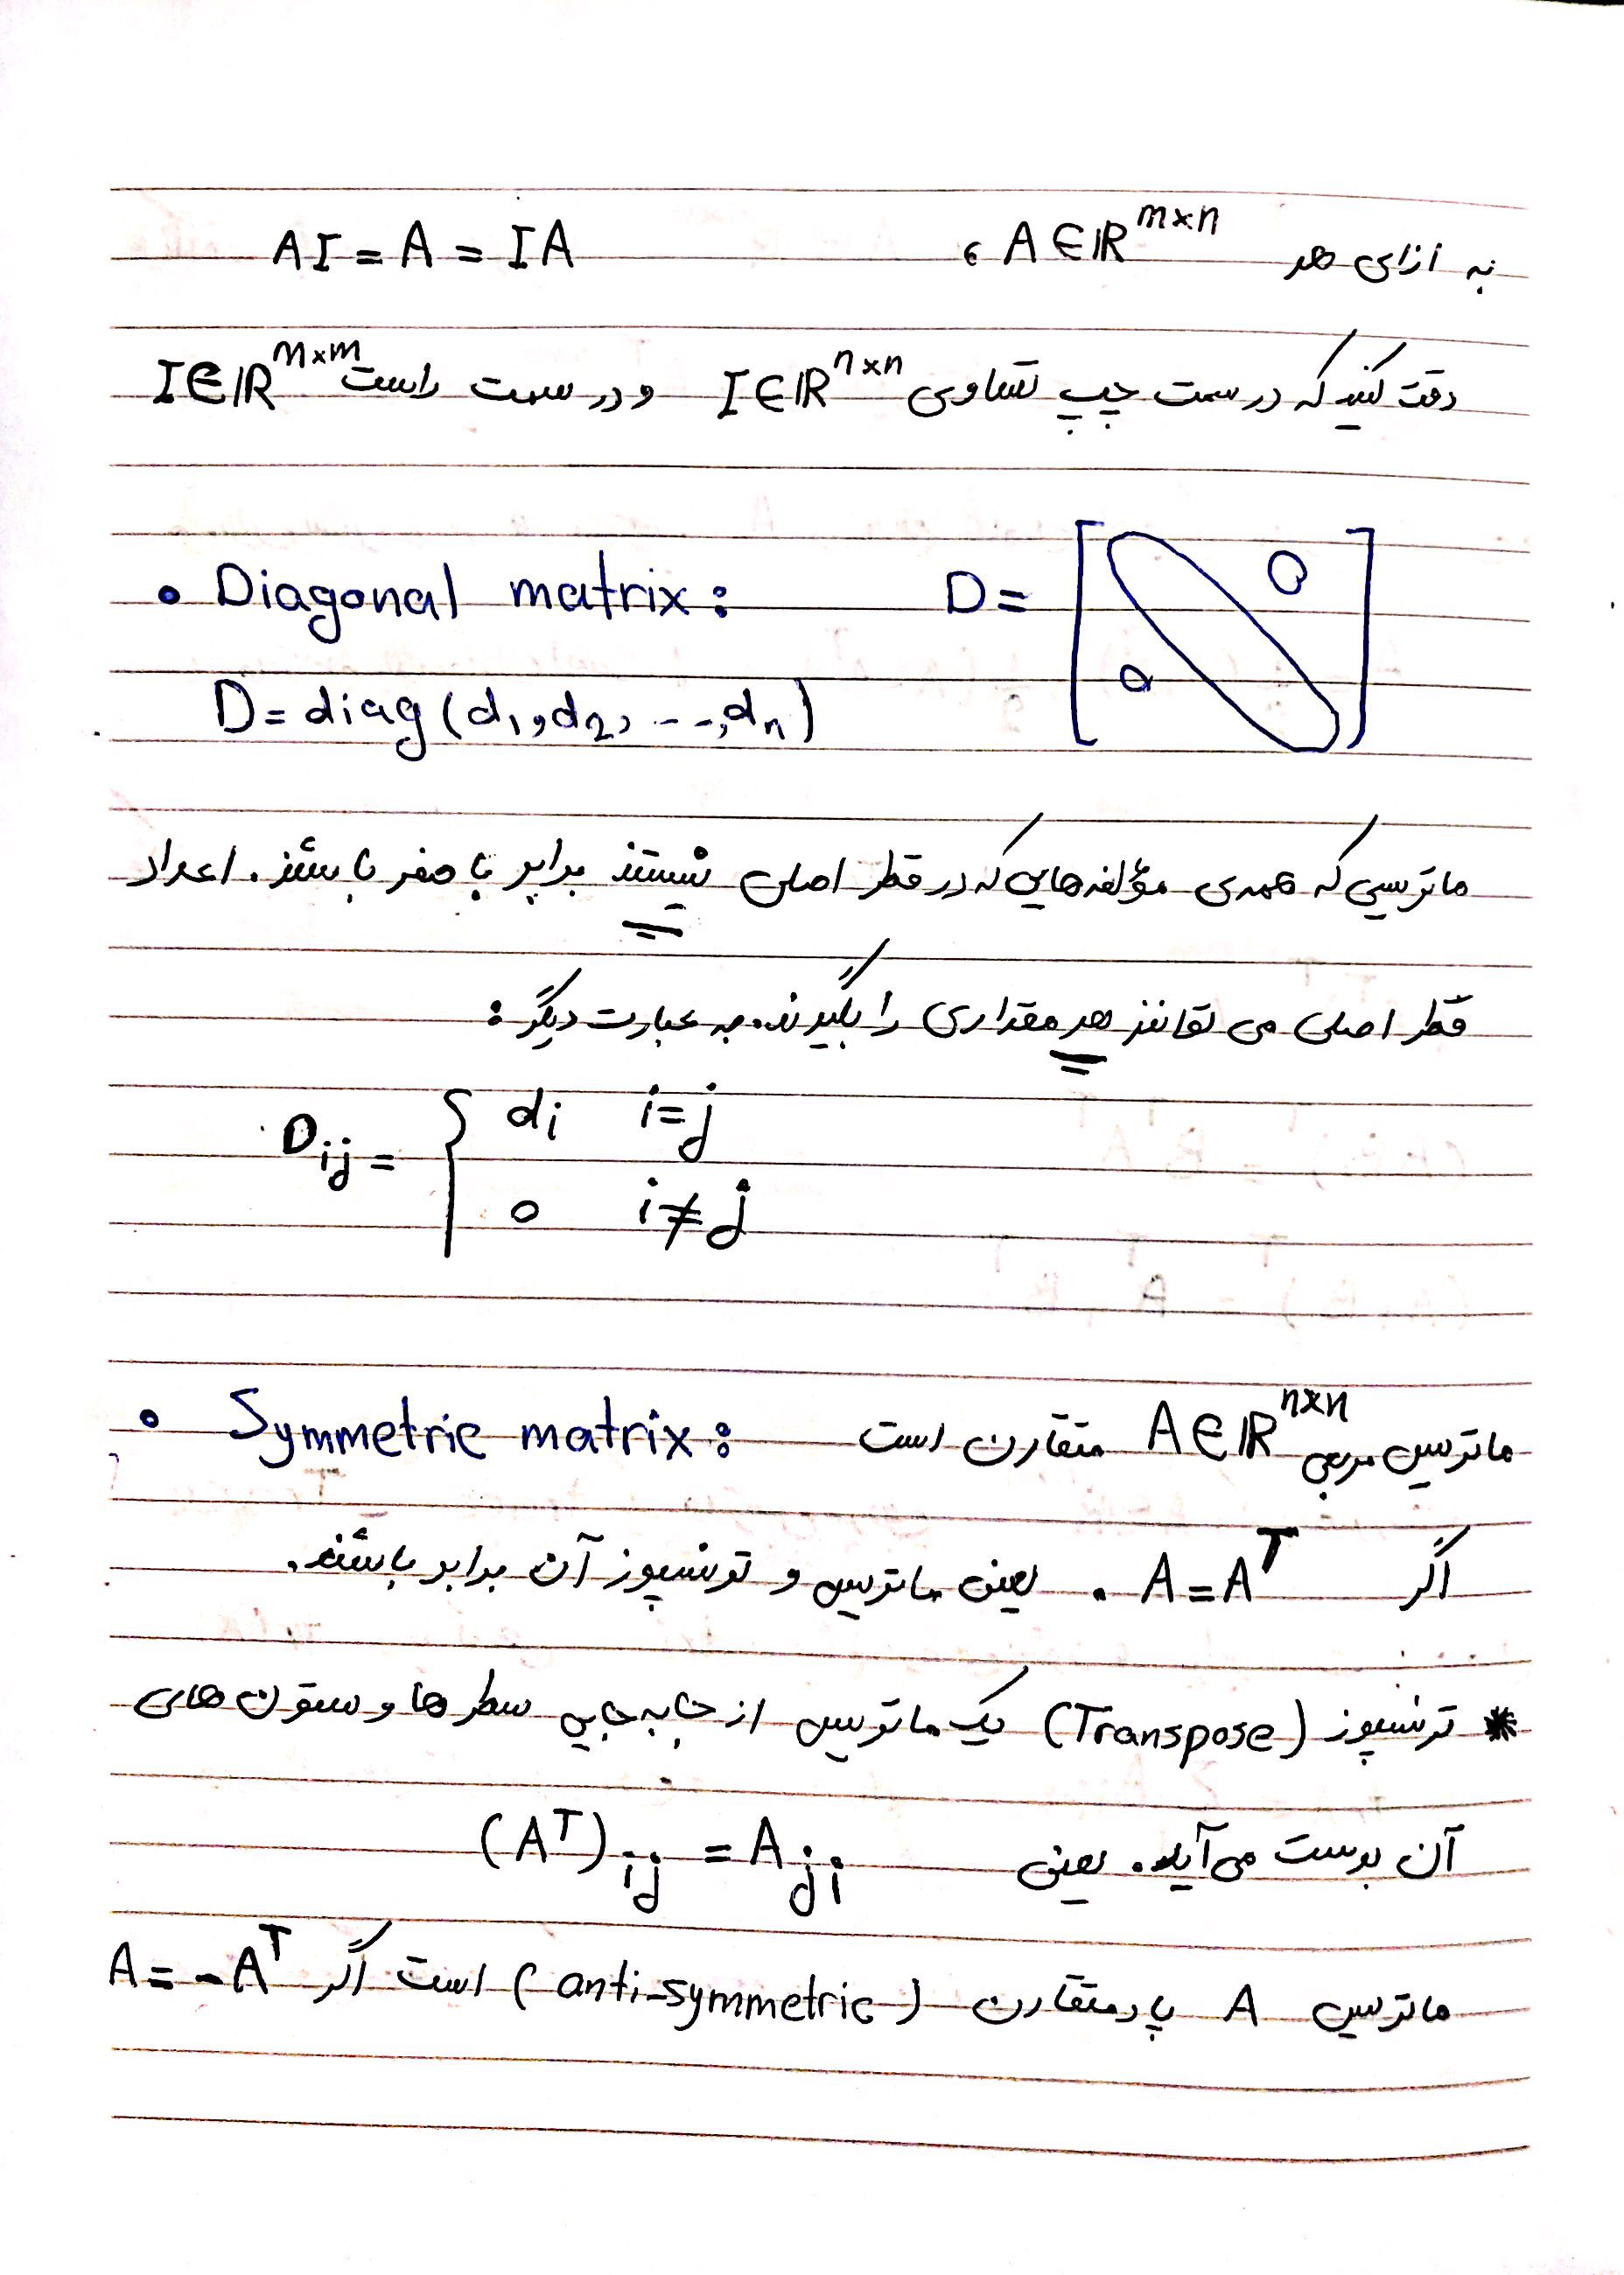 به ازای هر A ∈ ℝ^{m×n} ، AI = A = IA
دقت کنید که در سمت چپ تساوی I ∈ ℝ^{n×n} و در سمت راست I ∈ ℝ^{m×m}
• Diagonal matrix: D = [ 0 0 ]
D = diag(d₁, d₂, ..., dₙ)
ماتریسی که همه‌ی مؤلفه‌هایی که در قطر اصلی نیستند برابر با صفر باشند. اعداد
قطر اصلی می توانند هر مقداری را بگیرند. به عبارت دیگر :
D_{ij} = { d_i i=j
0 i≠j
• Symmetric matrix: ماتریس مربعی A ∈ ℝ^{n×n} متقارن است
اگر A = A^T . یعنی ماتریس و ترنسپوز آن برابر باشند.
* ترنسپوز (Transpose) یک ماتریس از جابه‌جایی سطرها و ستون های
آن بدست می‌آید. یعنی (A^T)_{ij} = A_{ji}
ماتریس A پادمتقارن (anti-symmetric) است اگر A = -A^T